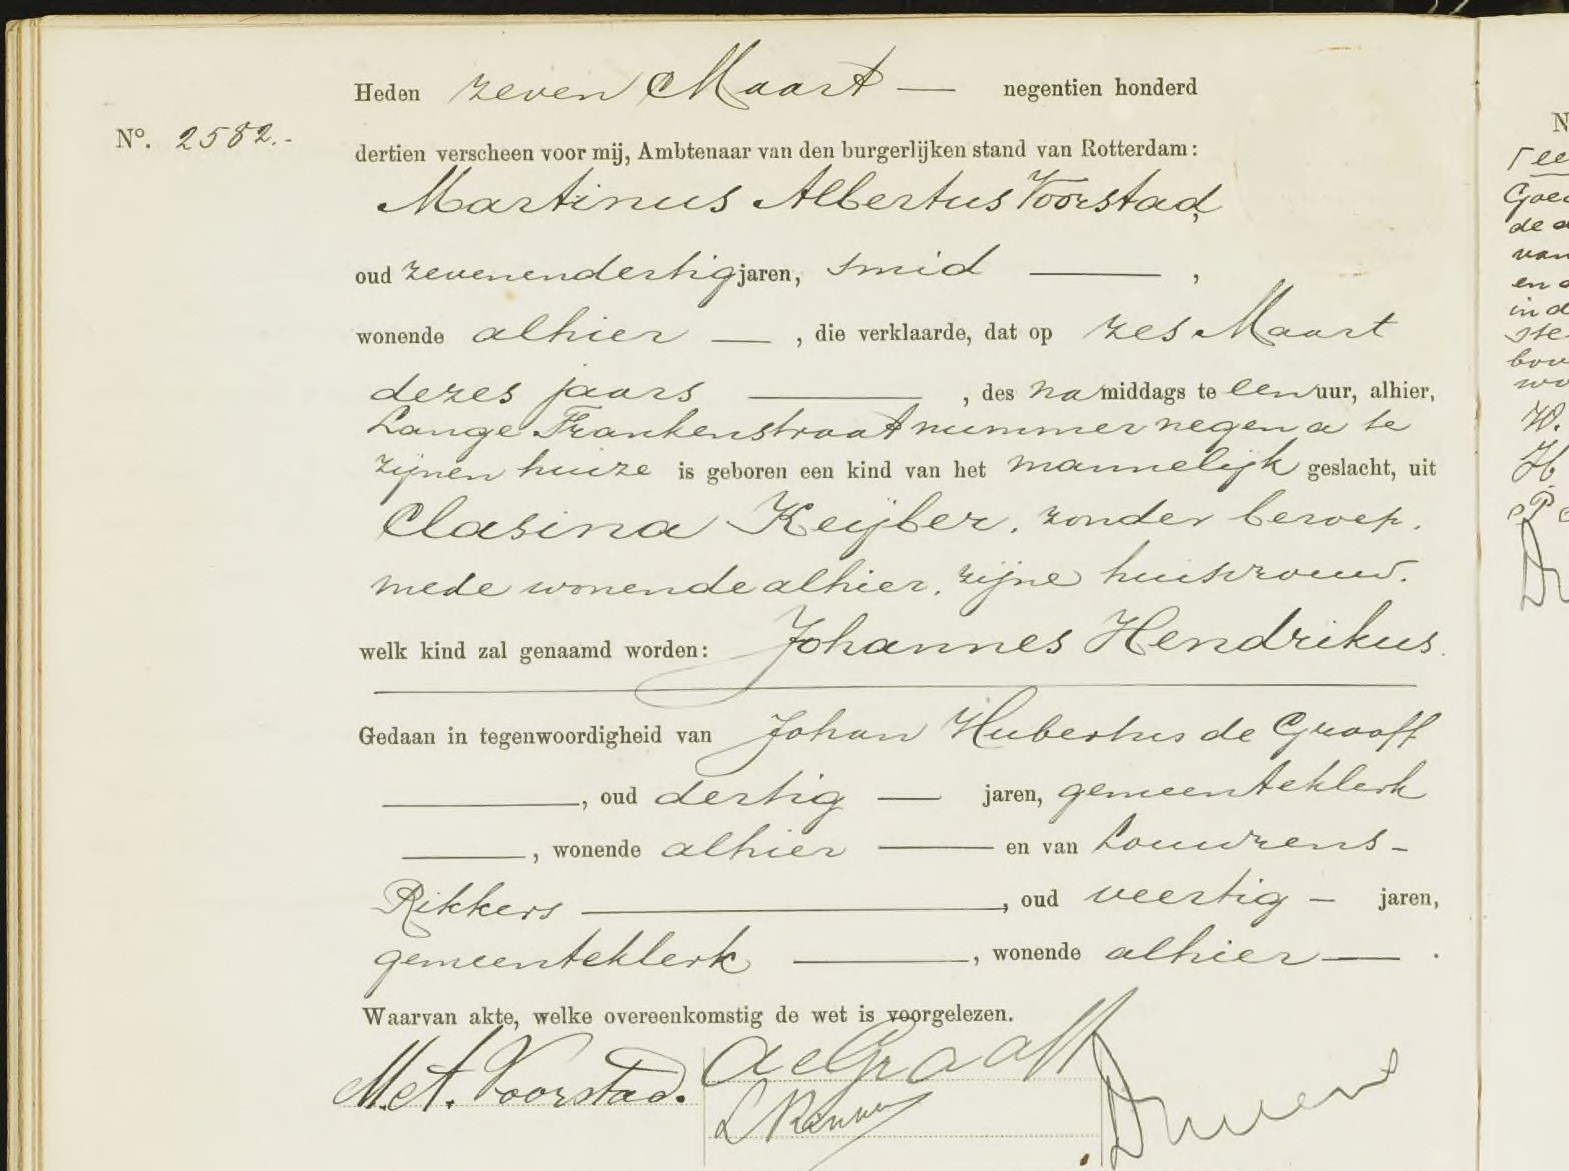 Heden zeven Maart — negentien honderd
No. 2582.-
dertien verscheen voor mij, Ambtenaar van den burgerlijken stand van Rotterdam:
Martinus Albertus Voorstad,
oud zevenendertig jaren, smid —,
wonende alhier —, die verklaarde, dat op zes Maart
dezes jaars —, des namiddags te een uur, alhier,
Lange Frankenstraat nummer negen a te
zijnen huize is geboren een kind van het mannelijk geslacht, uit
Clasina Keijber, zonder beroep,
mede wonende alhier, zijne huisvrouw.
welk kind zal genaamd worden: Johannes Hendrikus.
Gedaan in tegenwoordigheid van Johan Hubertus de Graaff
—, oud dertig — jaren, gemeenteklerk
—, wonende alhier — en van Louwrens-
Rikkers —, oud veertig — jaren,
gemeenteklerk —, wonende alhier — .
Waarvan akte, welke overeenkomstig de wet is voorgelezen.
M. A. Voorstad. de Graaff